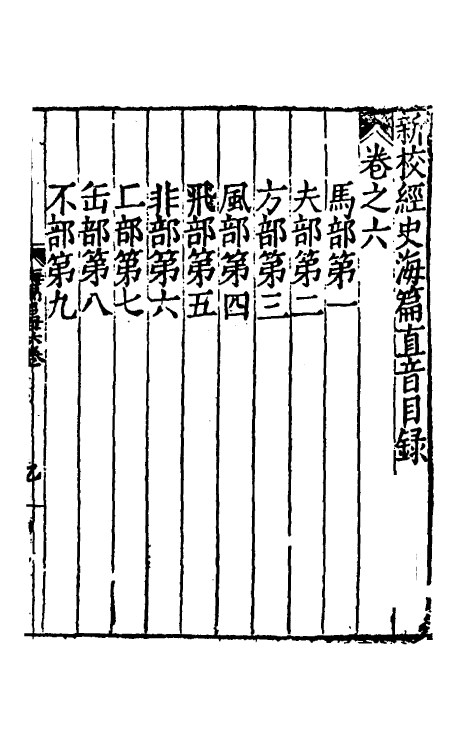 新校經史海篇直音目録
卷之六
馬部第一
夫部第二
方部第三
風部第四
飛部第五
非部第六
匚部第七
缶部第八
不部第九